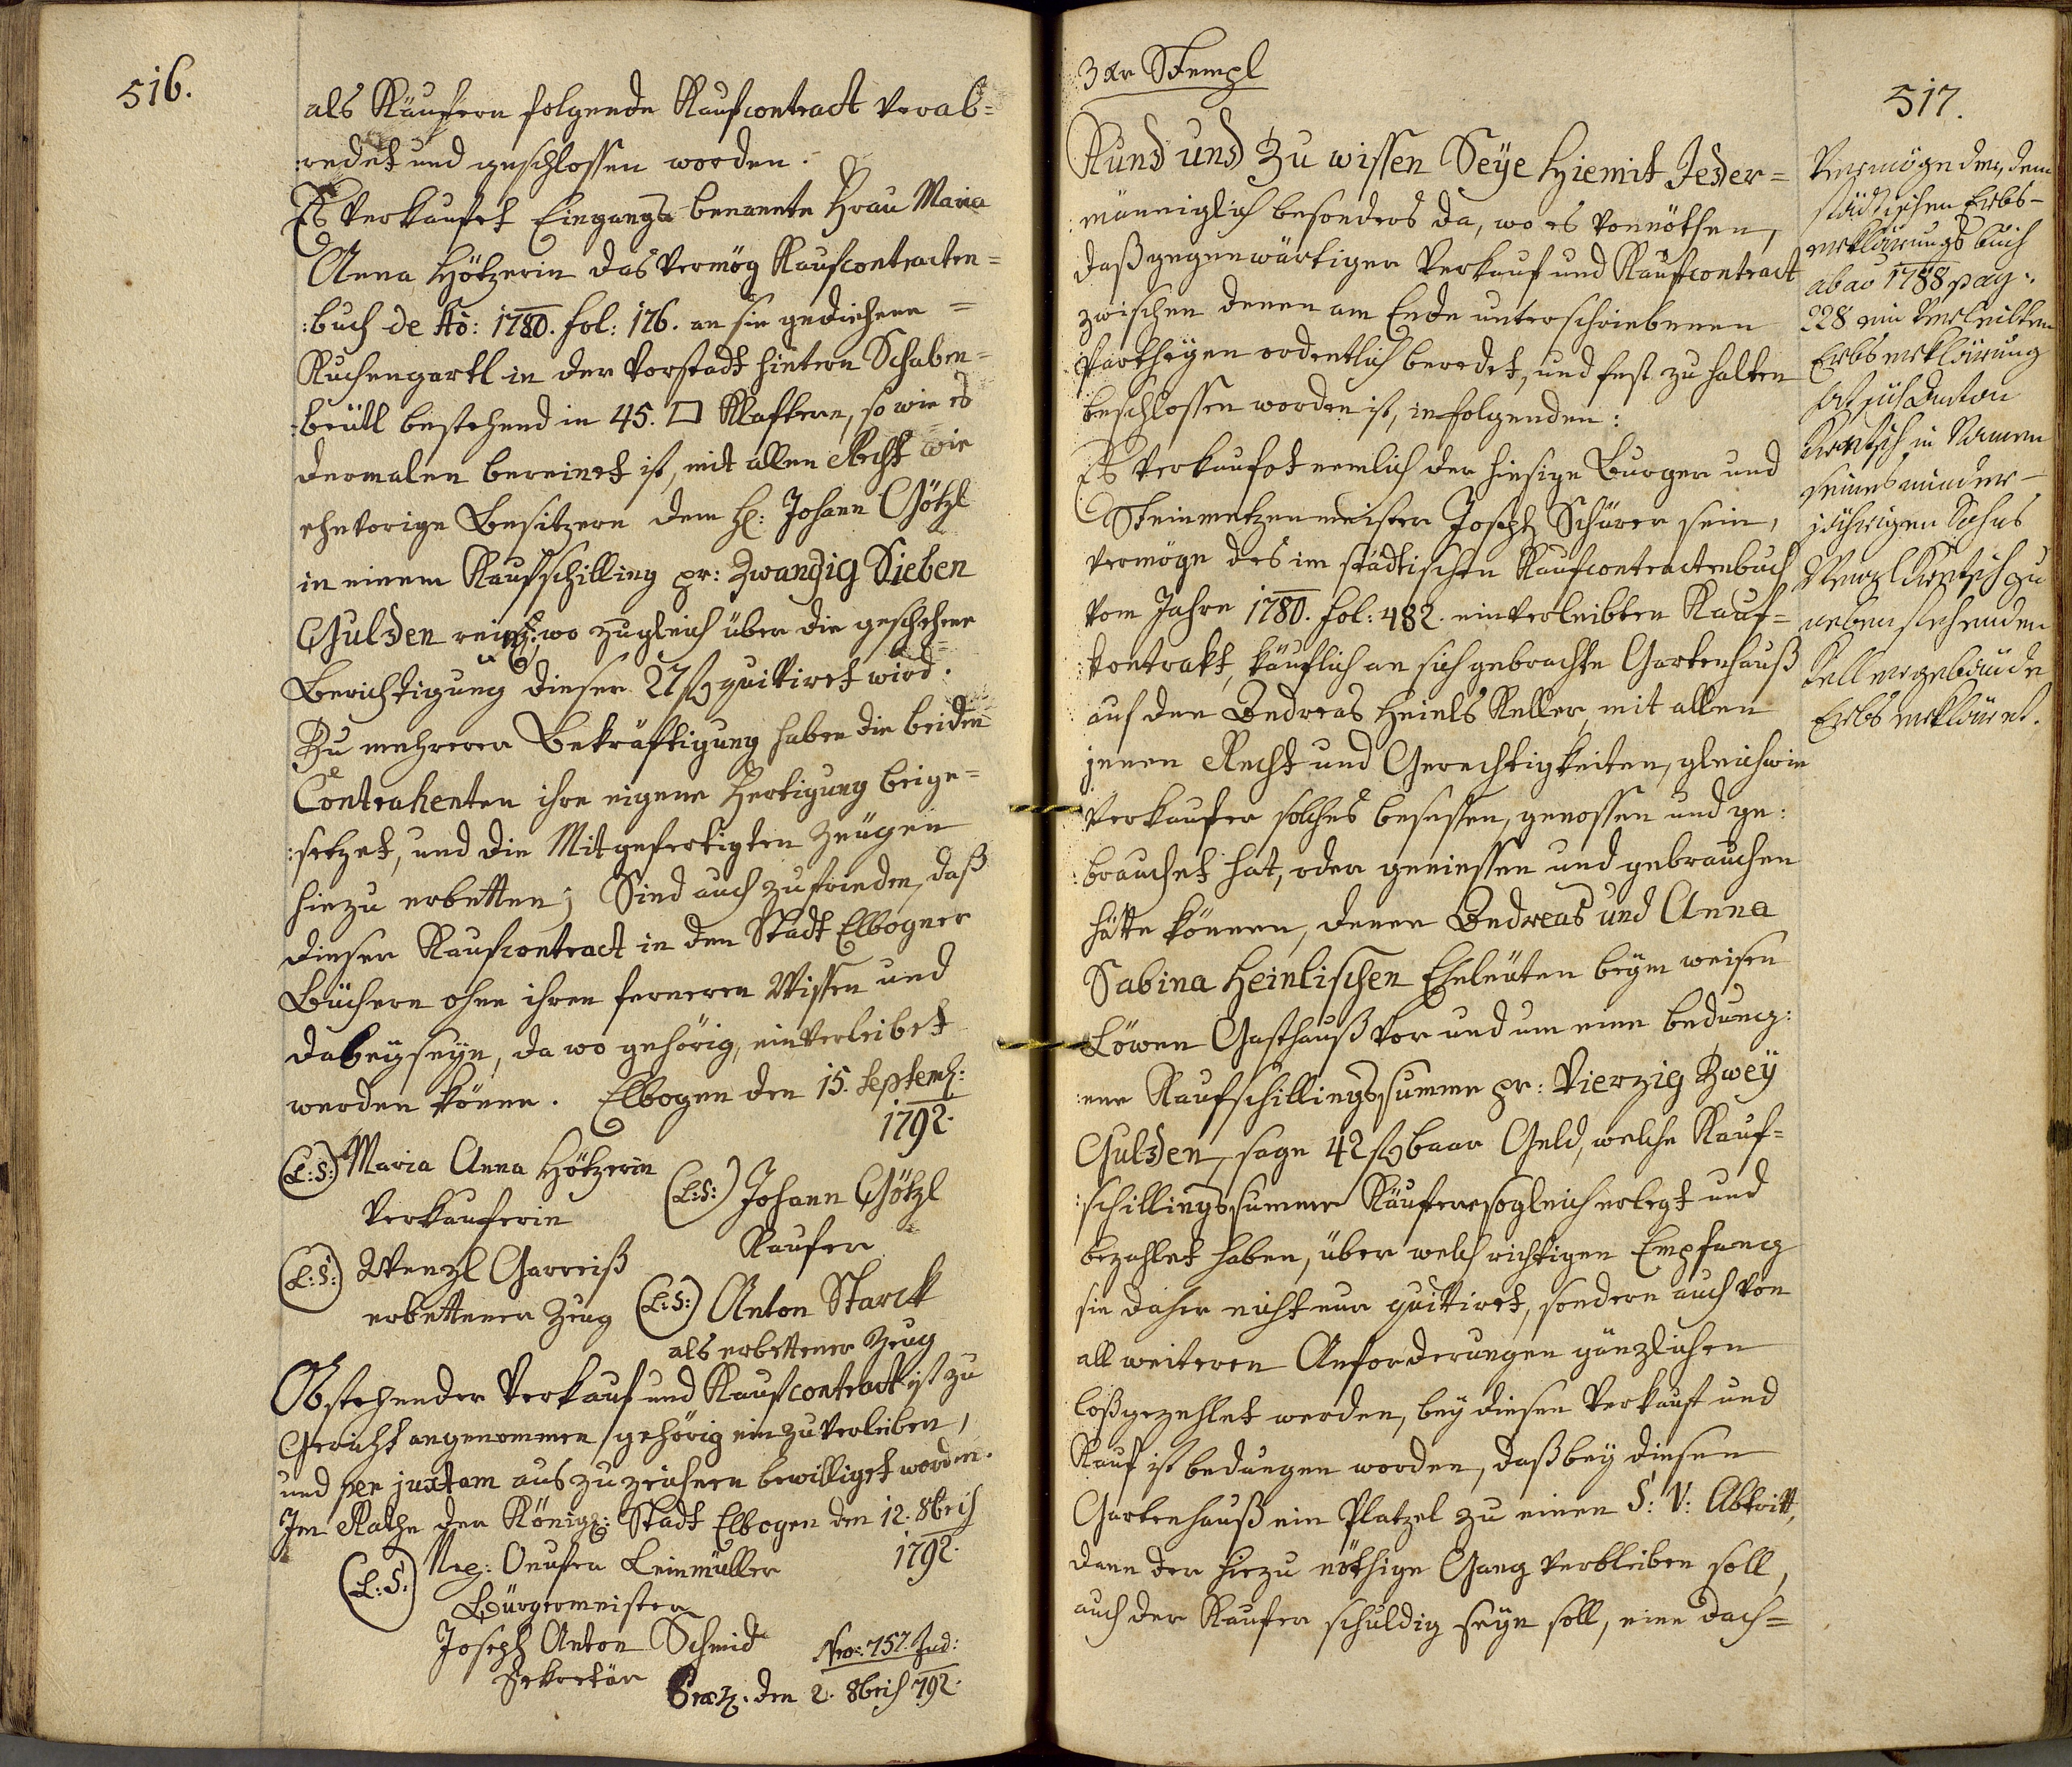 516.
als Käufern folgende Kaufcontract verab=
:redet und geschlossen worden.
Es verkaufet Eingangs benannte Frau Maria
Anna Hötzerin das vermög Kaufcontracten=
:buch de Ao: 1780. fol: 176. an sie gediehene =
Kuchengartl in der Vorstadt hintern Schaben=
:beütl bestehend in 45. □ Klaftern, so wie es
dermalen bereinet ist, mit allen Recht wie
ehevorige Besitzern dem H: Johann Götzl
in einem Kaufschilling pr: Zwanzig Sieben
Gulden wo zugleich über die geschehene
Berichtigung dieser 27 f quitiret wird.
Zu mehrerer Bekräftigung haben die beiden
Contrahenten ihre eigene Fertigung beige=
:setzet, und die Mitgefertigten Zeugen
hiezu erbetten; Sind auch zufrieden, daß
dieser Kaufcontract in den Stadt Elbogner
Büchern ohne ihren ferneren Wissen und
dabeyseyn, da wo gehörig, einverleibet
werden könne. Elbogen den 15. Septemb:
1792.
(L:S:) Maria Anna Hötzerin
Verkauferin
(L:S:) Johann Götzl
Kaufer
(L:S:) Wenzl Garreiß
erbettener Zeug
(L:S:) Anton Starck
als erbettener Zeug
Obstehender Verkauf und Kaufcontract ist zu
Gericht angenommen, gehörig einzuverleiben,
und per juxtam auszuzeichnen bewilliget worden.
Im Rathe der Königl: Stadt Elbogen den 12. 8bris
1792.
(L:S:) Leinmüller
Bürgermeister
Joseph Anton Schmid
Sekretär
Nro: 757. Jud:
den 2. 8bris 792.
3 Xr Stempl
Kund und Zu wissen Seye Hiemit Jeder=
männiglich besonders da, wo es vonnöthen,
daß gegenwärtiger Verkauf und Kaufcontract
zwischen denen am Ende unterschriebenen
Partheyen ordentlich beredet, und fest zu halten
beschlossen worden ist, in folgenden:
Es verkaufet nemlich der hiesige Burger und
Steinmetzenmeister Joseph Schürer sein,
vermöge des im städtischen Kaufcontractenbuch
vom Jahre 1780. fol: 482. einverleibten Kauf=
:kontrakt, käuflich an sich gebrachte Gartenhauß
auf den Andreas Heinls Keller, mit allen
jenen Recht und Gerechtigkeiten, gleichwie
Verkaufer solches besessen, genossen und ge:
:brauchet hat, oder geniessen und gebrauchen
hätte können, denen Andreas und Anna
Sabina Heinlischen Eheleuten beym weisen
Löwen Gasthauß vor und um eine bedung:
:ene Kaufschillingssumme pr: Vierzig Zwey
Gulden, sage 42 f baar Geld, welche Kauf=
:schillingssumme Käufere sogleich erlegt und
bezahlet haben, über welch richtigen Empfang
sie daher nicht nur quitiret, sondern auch von
all weiteren Anforderungen gänzlichen
loßgezehlet werden, bey diesen Verkauft und
Kauf ist bedungen worden, daß bey diesen
Gartenhauß ein Platzel zu einen S: V: Abtritt,
dann der hiezu nöthige Gang verbleiben soll,
auch der Kaufer schuldig seyn soll, eine dach=
517.
Vermöge der, dem
städtischen Erbs-
erklärungsbuch
ab ao 1788 pag:
228 einverleibten
Erbserklärung
hat sich Anton
in Namen
seines minder-
jährigen Sohns
Wenzl zu
nebenstehenden
Kellergebäude
Erbserkläret.